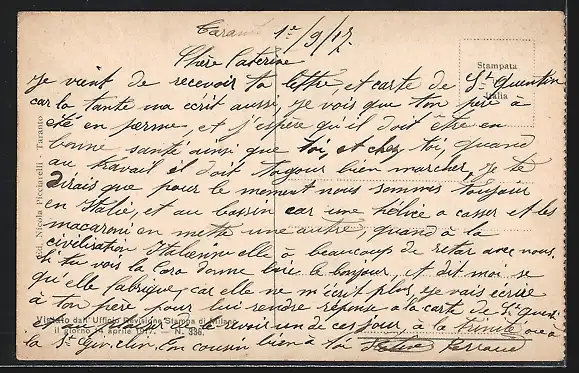 Taranto 1er/9/17
Chère Caterine
Je vient de recevoir ta lettre, et carte de St Quentin
car la tante ma ecrit aussi, je vois que ton père à
été en perme, et j'espère qu'il doit être en
bonne santé ainsi que toi, et chez toi, quand
au travail il doit toujour bien marcher, je te
dirais que pour le moment nous sommes toujour
en Italie, et au bassin car une hélice a casser et les
macaroni en mette une autre, quand à la
civilisation Italienne elle à beaucoup de retar avec nous.
Si tu vois la donne lui le bonjour, et dit moi se
qu'elle fabrique, car elle ne m'écrit plus, je vais écrire
à ton père pour lui rendre réponse a la carte de St Quentin
et un de ces jour, à la trinité ou à
la St Ton cousin bien à toi
Stampata
Italia
Ed. Nicola Picciarelli - Taranto
Visitato dall'Ufficio Revisione Stampa di Milano
il giorno 14 aprile 1917. - N. 336.